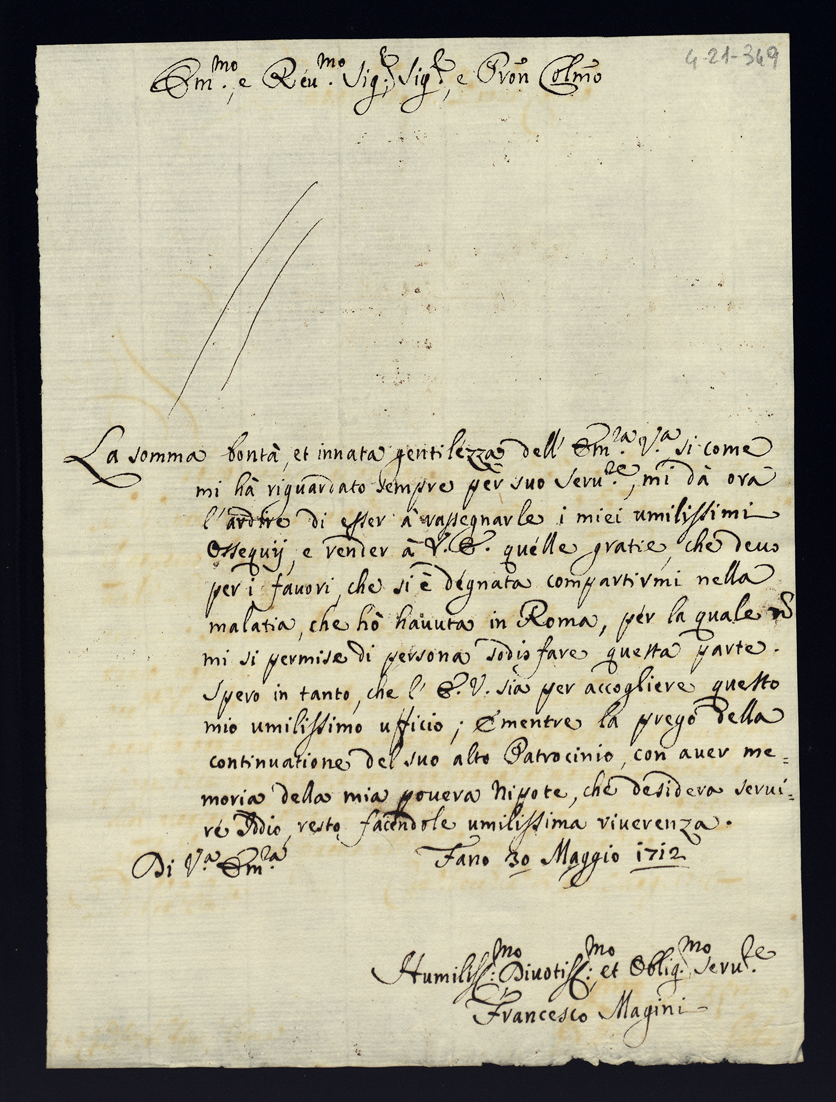 4-21-349
Em.mo, e Reu.mo Sig.r, Sig.r, e Pron Colmo
La somma bontà, et innata gentilezza dell' Em.za V.a si come
mi hà riguardato sempre per suo Seru.re, mi dà ora
l'ardire di esser à rassegnarle i miei umilissimi
Ossequij, e render à V. E. quelle gratie, che deuo
per i fauori, che si è degnata compartirmi nella
malatia, che hò hauuta in Roma, per la quale nõ
mi si permise di persona sodisfare questa parte.
Spero in tanto, che l' E. V. sia per accogliere questo
mio umilissimo ufficio; E mentre la prego della
continuatione del suo alto Patrocinio, con auer me=
moria della mia pouera Nipote, che desidera serui=
re Adio, resto facendole umilissima riuerenza.
Di V.a Em.za Fano 30 Maggio 1712
Humiliss.mo: Diuotiss.mo; et Oblig.mo Seru.re
Francesco Magini